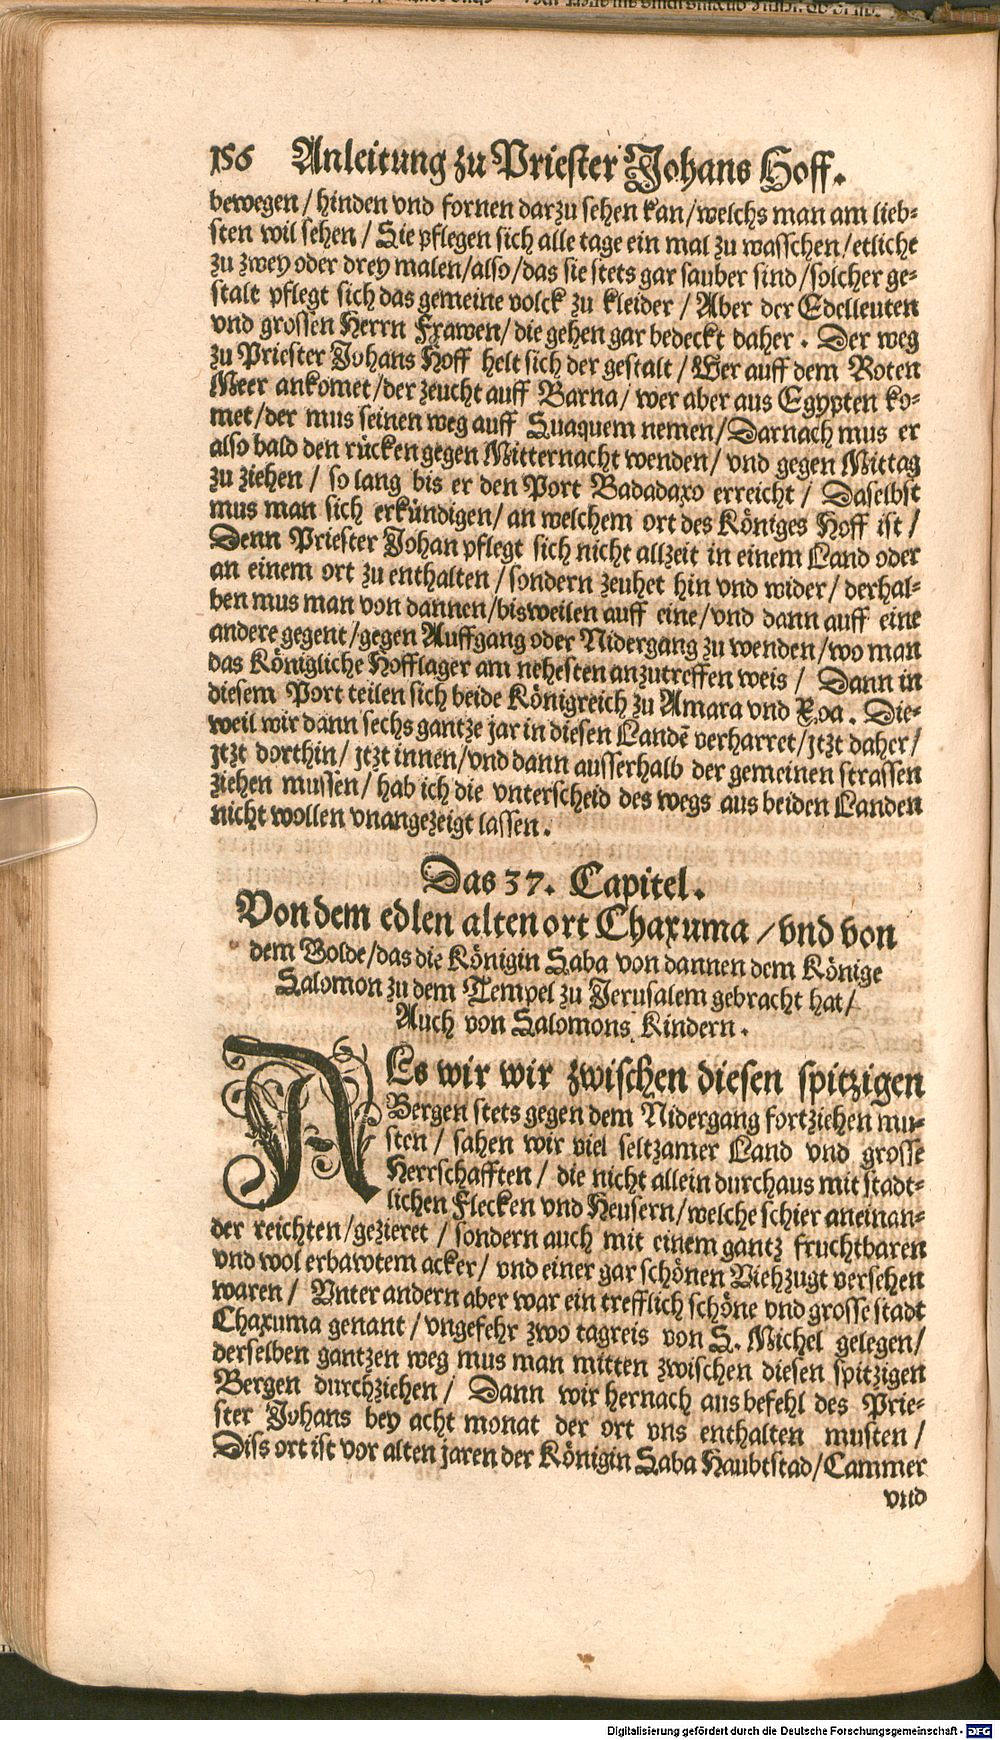 156 Anleitung zu Priester Johans Hoff.
bewegen / hinden vnd fornen darzu sehen kan / welchs man am lieb-
sten wil sehen / Sie pflegen sich alle tage ein mal zu wasschen / etliche
zu zwey oder drey malen / also / das sie stets gar sauber sind / solcher ge-
stalt pflegt sich das gemeine volck zu kleider / Aber der Edelleuten
vnd grossen Herrn Frawen / die gehen gar bedeckt daher. Der weg
zu Priester Johans Hoff helt sich der gestalt / Wer auff dem Roten
Meer ankomet / der zeucht auff Barna / wer aber aus Egypten ko-
met / der mus seinen weg auff Suaquem nemen / Darnach mus er
also bald den rücken gegen Mitternacht wenden / vnd gegen Mittag
zu ziehen / so lang bis er den Port Badadaxo erreicht / Daselbst
mus man sich erkündigen / an welchem ort des Königes Hoff ist /
Denn Priester Johan pflegt sich nicht allzeit in einem Land oder
an einem ort zu enthalten / sondern zeuhet hin vnd wider / derhal-
ben mus man von dannen / bisweilen auff eine / vnd dann auff eine
andere gegent / gegen Auffgang oder Nidergang zu wenden / wo man
das Königliche Hofflager am nehesten anzutreffen weis / Dann in
diesem Port teilen sich beide Königreich zu Amara vnd Xoa. Die-
weil wir dann sechs gantze jar in diesen Landē verharret / jtzt daher /
jtzt dorthin / jtzt innen / vnd dann ausserhalb der gemeinen strassen
ziehen mussen / hab ich die vnterscheid des wegs aus beiden Landen
nicht wollen vnangezeigt lassen.
Das 37. Capitel.
Von dem edlen alten ort Chaxuma / vnd von
dem Golde / das die Königin Saba von dannen dem Könige
Salomon zu dem Tempel zu Jerusalem gebracht hat /
Auch von Salomons Kindern.
ALs wir wir zwischen diesen spitzigen
Bergen stets gegen dem Nidergang fortziehen mu-
sten / sahen wir viel seltzamer Land vnd grosse
Herrschafften / die nicht allein durchaus mit stadt-
lichen Flecken vnd Heusern / welche schier aneinan-
der reichten / gezieret / sondern auch mit einem gantz fruchtbaren
vnd wol erbawtem acker / vnd einer gar schönen Viehzugt versehen
waren / Vnter andern aber war ein trefflich schöne vnd grosse stadt
Chaxuma genant / vngefehr zwo tagreis von S. Michel gelegen /
derselben gantzen weg mus man mitten zwischen diesen spitzigen
Bergen durchziehen / Dann wir hernach aus befehl des Prie-
ster Johans bey acht monat der ort vns enthalten musten /
Diss ort ist vor alten jaren der Königin Saba Haubtstad / Cammer
vnd
Digitalisierung gefördert durch die Deutsche Forschungsgemeinschaft - DFG